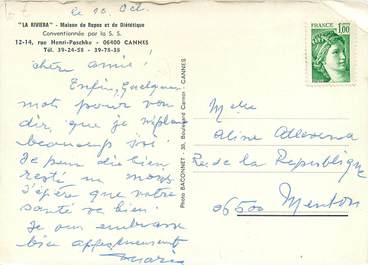 le 10 Oct.
"LA RIVIERA" - Maison de Repos et de Diététique
Conventionnée par la S. S.
12-14, rue Henri-Paschke - 06400 CANNES
Tél. 39-24-58 - 39-78-35
chère amie!
Enfin, quelques
mots pour vous
dire, que je
beaucoup ici
Je peux dire bien
resté un mois
J'éspère que votre
santé va bien.
Je vous embrasse
bien affectueusement
Maria
Photo BACONNET - 30, Boulevard Carnot - CANNES
FRANCE
1,00
Melle
Aline
Rue de la Republique
06500 Menton